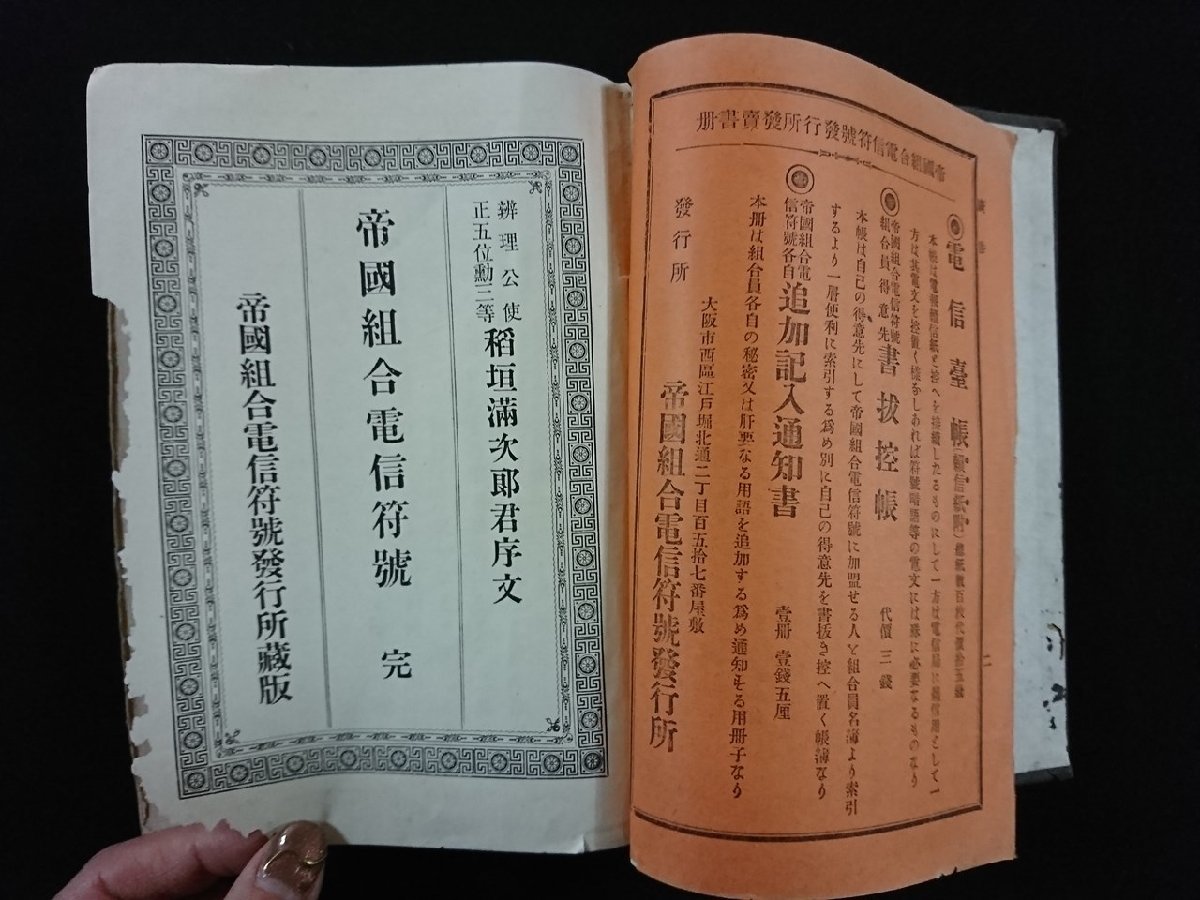 帝國組合電信符號發行所發賣書册
電信臺帳(頼信紙附)
方は我電文を控置く樣なしあれば符號略語等の電文には殊に必要なるものなり
帝國組合電信符號
組合員得意先書拔控帳 代價三錢
本帳は自己の得意先にして帝國組合電信符號に加盟せる人を組合員名簿より索引
するより一層便利に索引する爲め別に自己の得意先を書拔き控へ置く帳簿なり
帝國組合電
信符號各自追加記入通知書 壹册 壹錢五厘
本册は組合員各自の秘密又は肝要なる用語を追加する爲め通知する用册子なり
大阪市西區江戸堀北通二丁目百五拾七番屋敷
發行所 帝國組合電信符號發行所
辨理公使
正五位勳三等稻垣滿次郎君序文
帝國組合電信符號 完
帝國組合電信符號發行所藏版